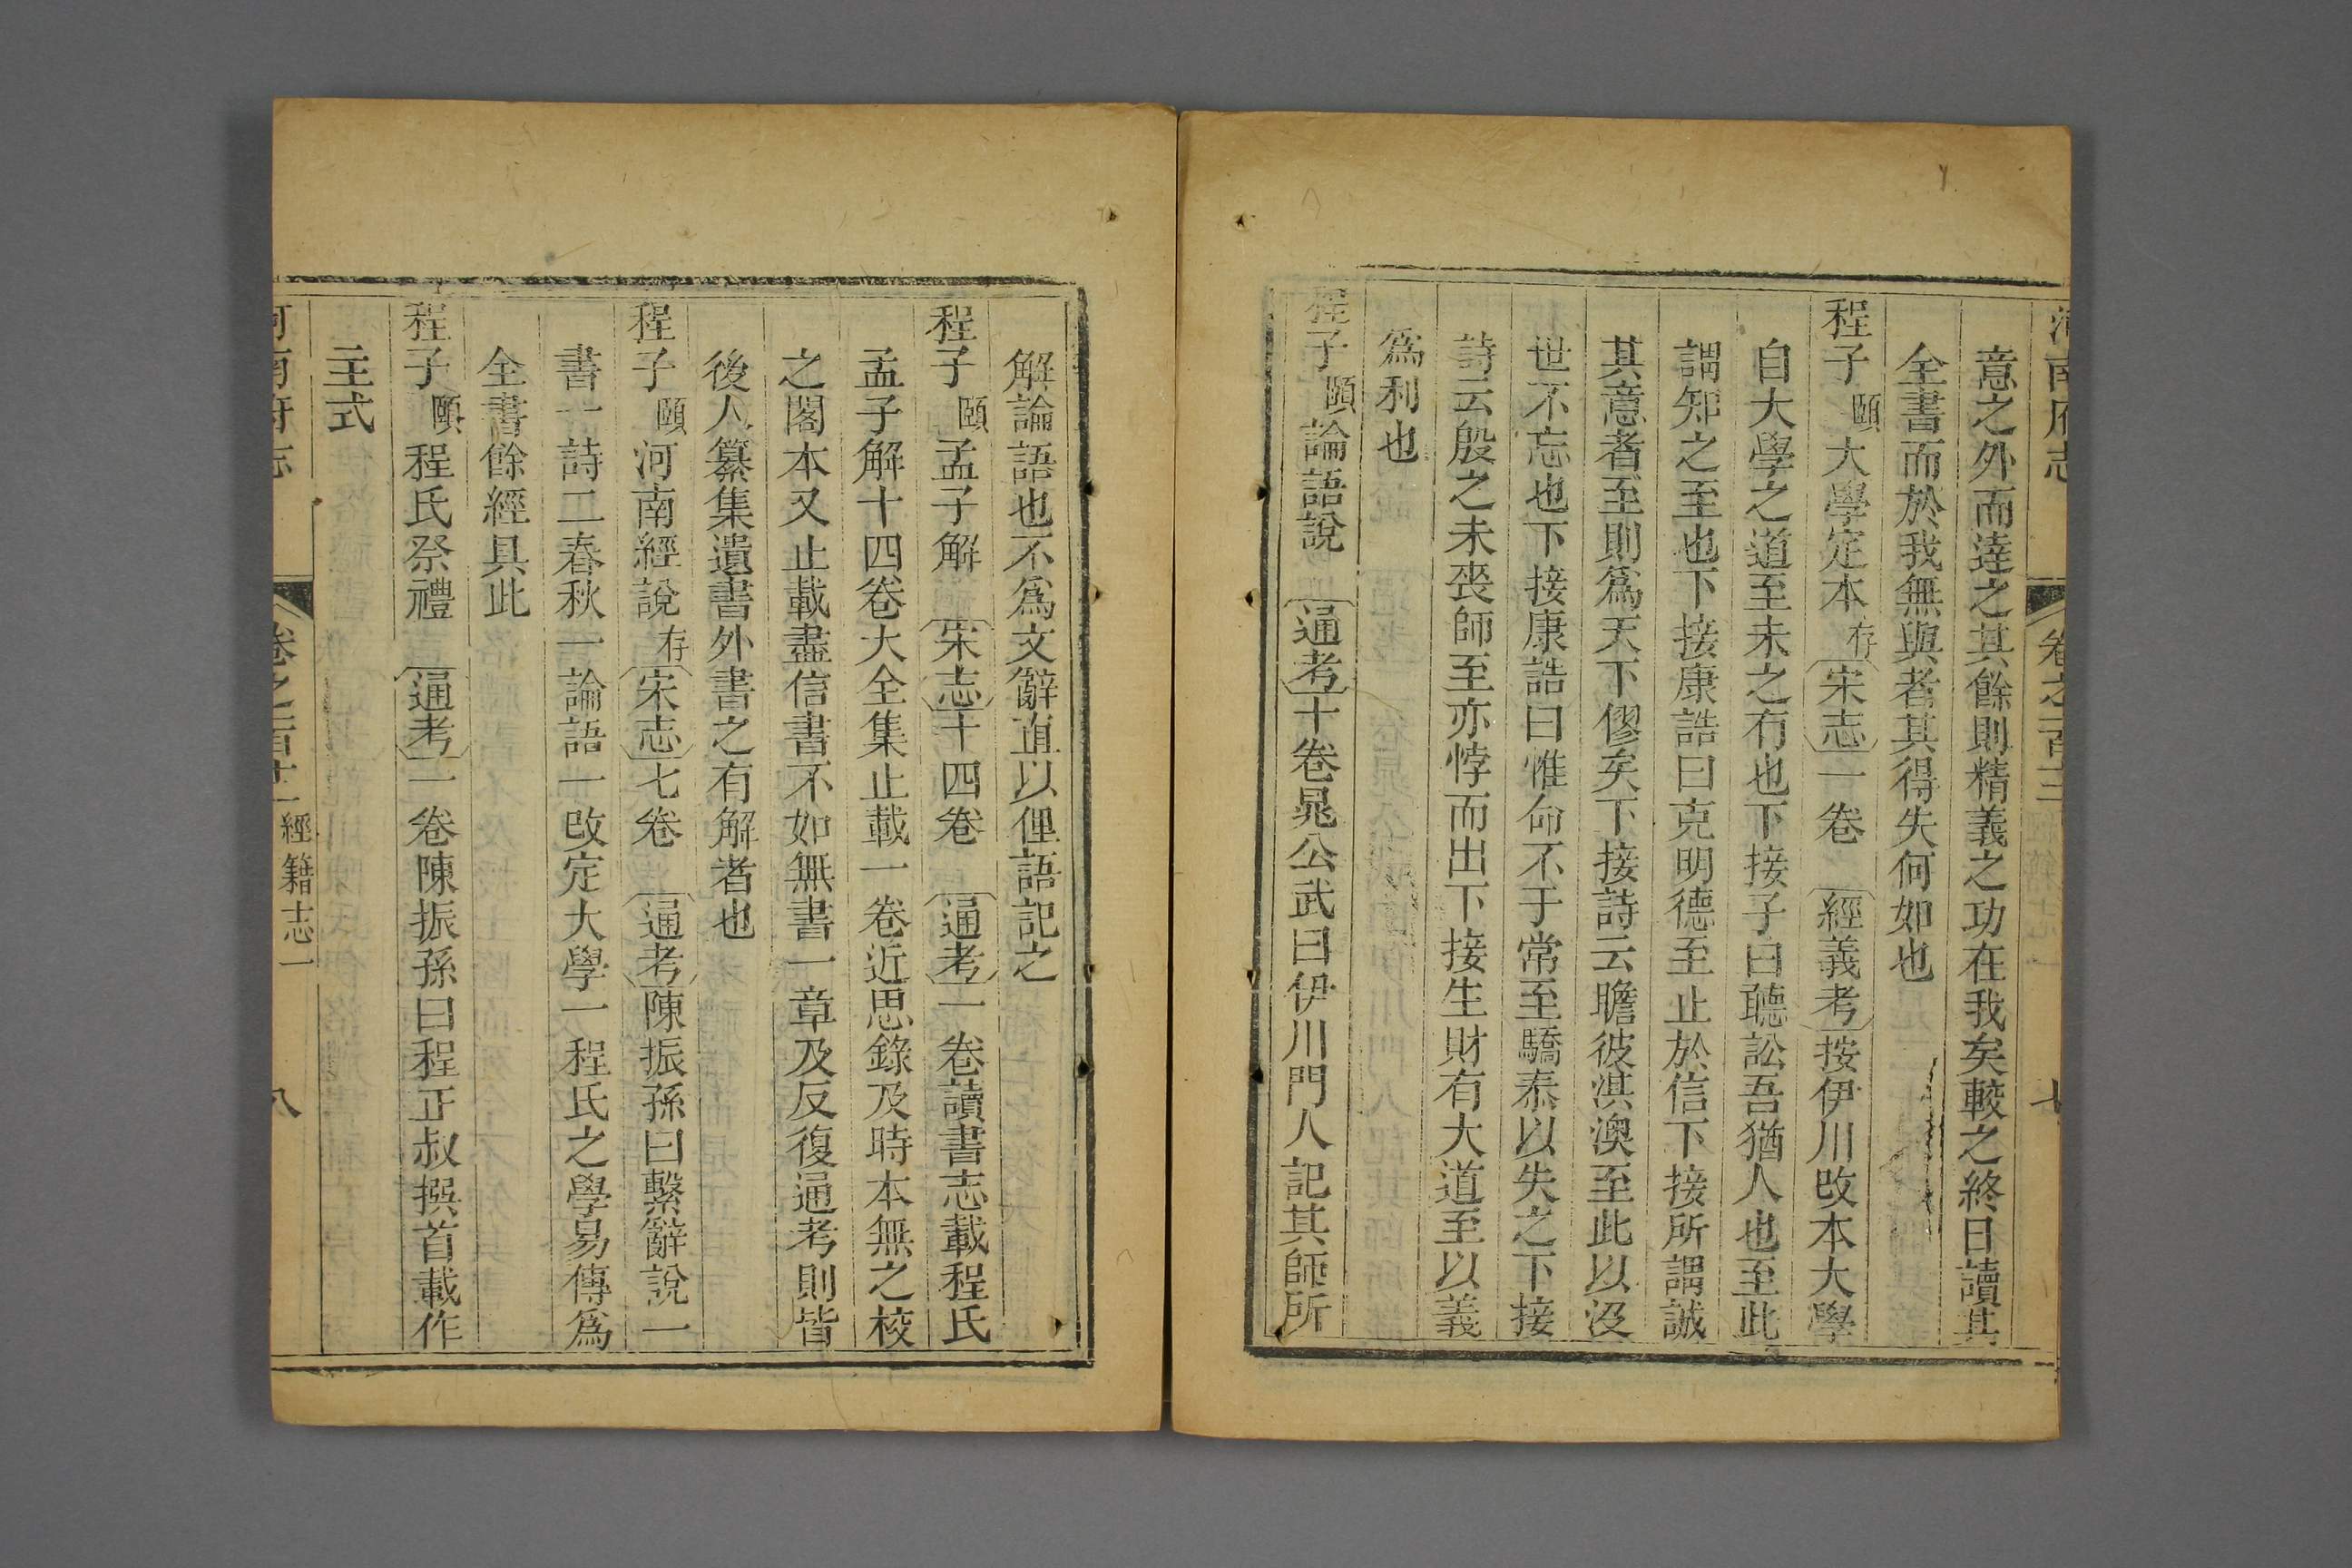 河南府志 卷之一百三 七
意之外而達之其餘則精義之功在我矣較之終日讀其
全書而於我無與者其得失何如也
程子頤大學定本存宋志一卷 經義考按伊川改本大學
自大學之道至未之有也下接子曰聽訟吾猶人也至此
謂知之至也下接康誥曰克明德至止於信下接所謂誠
其意者至則爲天下僇矣下接詩云瞻彼淇澳至此以沒
世不忘也下接康誥曰惟命不于常至驕泰以失之下接
詩云殷之未喪師至亦悖而出下接生財有大道至以義
爲利也
程子頤論語說 通考十卷晁公武曰伊川門人記其師所
解論語也不爲文辭直以俚語記之
程子頤孟子解 宋志十四卷 通考一卷讀書志載程氏
孟子解十四卷大全集止載一卷近思錄及時本無之校
之閣本又止載盡信書不如無書一章及反復通考則皆
後人纂集遺書外書之有解者也
程子頤河南經說存宋志七卷 通考陳振孫曰繫辭說一
書一詩二春秋一論語一改定大學一程氏之學易傳爲
全書餘經具此
程子頤程氏祭禮 通考一卷陳振孫曰程正叔撰首載作
主式
河南府志 經籍志一 八